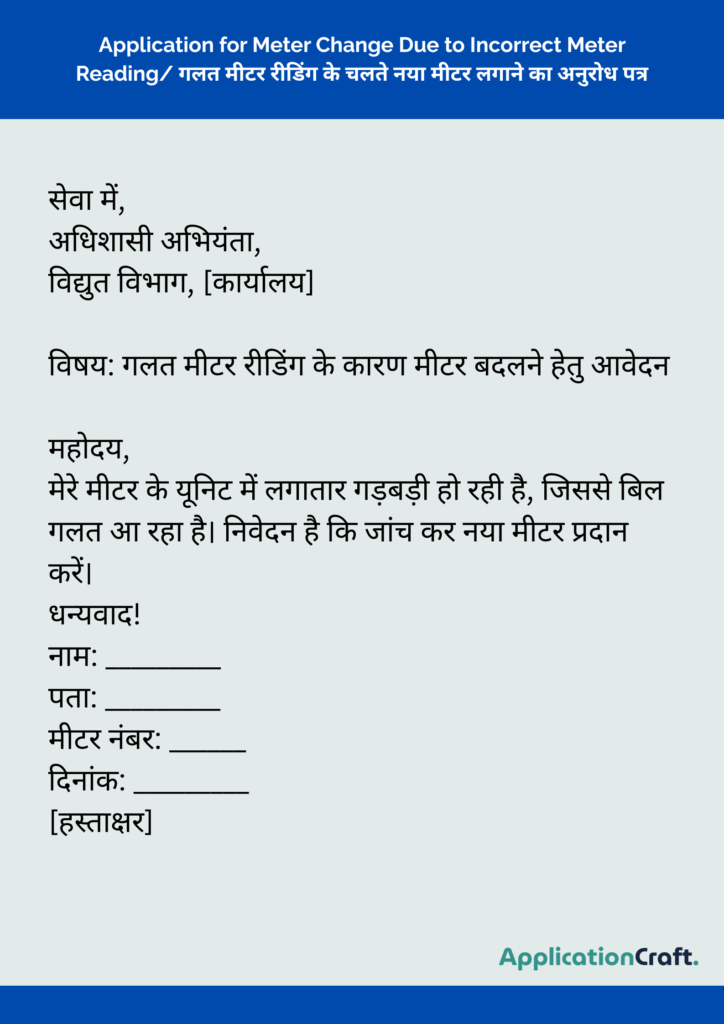 Application for Meter Change Due to Incorrect Meter
Reading/ गलत मीटर रीडिंग के चलते नया मीटर लगाने का अनुरोध पत्र
सेवा में,
अधिशासी अभियंता,
विद्युत विभाग, [कार्यालय]
विषय: गलत मीटर रीडिंग के कारण मीटर बदलने हेतु आवेदन
महोदय,
मेरे मीटर के यूनिट में लगातार गड़बड़ी हो रही है, जिससे बिल
गलत आ रहा है। निवेदन है कि जांच कर नया मीटर प्रदान
करें।
धन्यवाद!
नाम: _________
पता: _________
मीटर नंबर: ______
दिनांक: _________
[हस्ताक्षर]
ApplicationCraft.